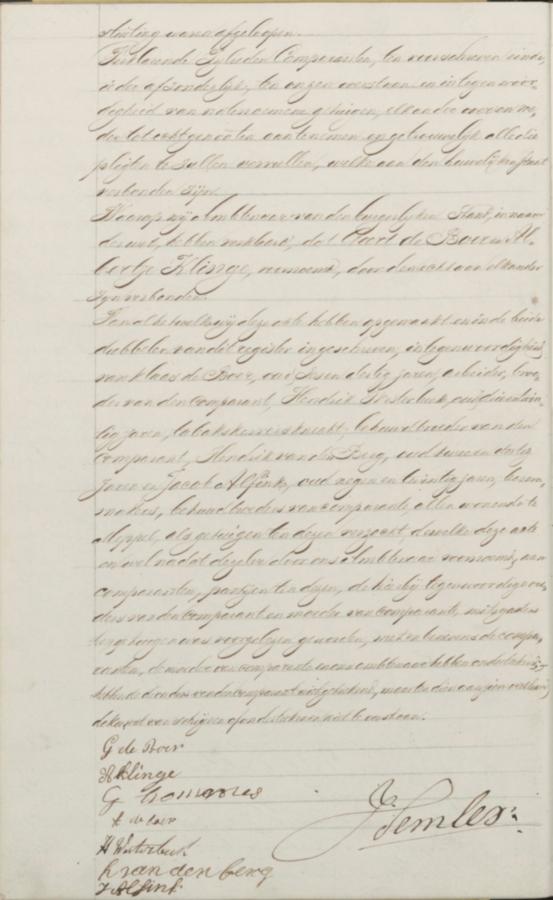 sluiting waren afgeloopen.
Verklarende Zijlieden Comparanten, ten voorschreven einde,
ieder afzonderlijk, ten onzen overstaan en in tegenwoor-
digheid van natenoemene getuigen, elkander over en we-
der tot echtgenooten aantenemen, en getrouwelijk alle die
pligten te zullen vervullen, welke aan den huwelijken staat
verbonden zijn.
Waarop wij Ambtenaar van den burgerlijken Stand, in naam
der wet, hebben verklaard, dat Geert de Boer en Al-
bertje Klinge, voornoemd, door den echt aan elkander
zijn verbonden.
Van al hetwelk wij deze acte hebben opgemaakt en in de beide
dubbelen van dit register ingeschreven, in tegenwoordigheid
van Klaas de Boer, oud zes en dertig jaren, arbeider, broe-
der van den comparant, Hendrik Westerbeek, oud drie en
tig jaren, tabakskerversknecht, behuwdbroeder van den
comparant, Hendrik van den Berg, oud twee en dertig
jaren en Jacob Alfink, oud negen en twintig jaren,
makers, behuwdbroeders van comparante, allen wonende te
Meppel, als getuigen ten dezen verzocht, dewelke deze acte
en wel nadat dezelve door ons Ambtenaar voornoemd, aan
comparanten, partijen ten dezen, de hierbij tegenwoordige ou-
ders van den comparant en moeder van comparante, mitsgaders
de getuigen was voorgelezen geworden, met en benevens de compa-
ranten, de moeder van comparante en ons ambtenaar hebben onderteekend,
hebbende de ouders van den comparant niet geteekend, maar ten dien aanzien verklaard
de kunst van schrijven of onderteekenen niet te verstaan.
G de Boer
A Klinge
G Hommes
K de Boer
H Westerbeek
H van den berg
J Alfink
J Semler